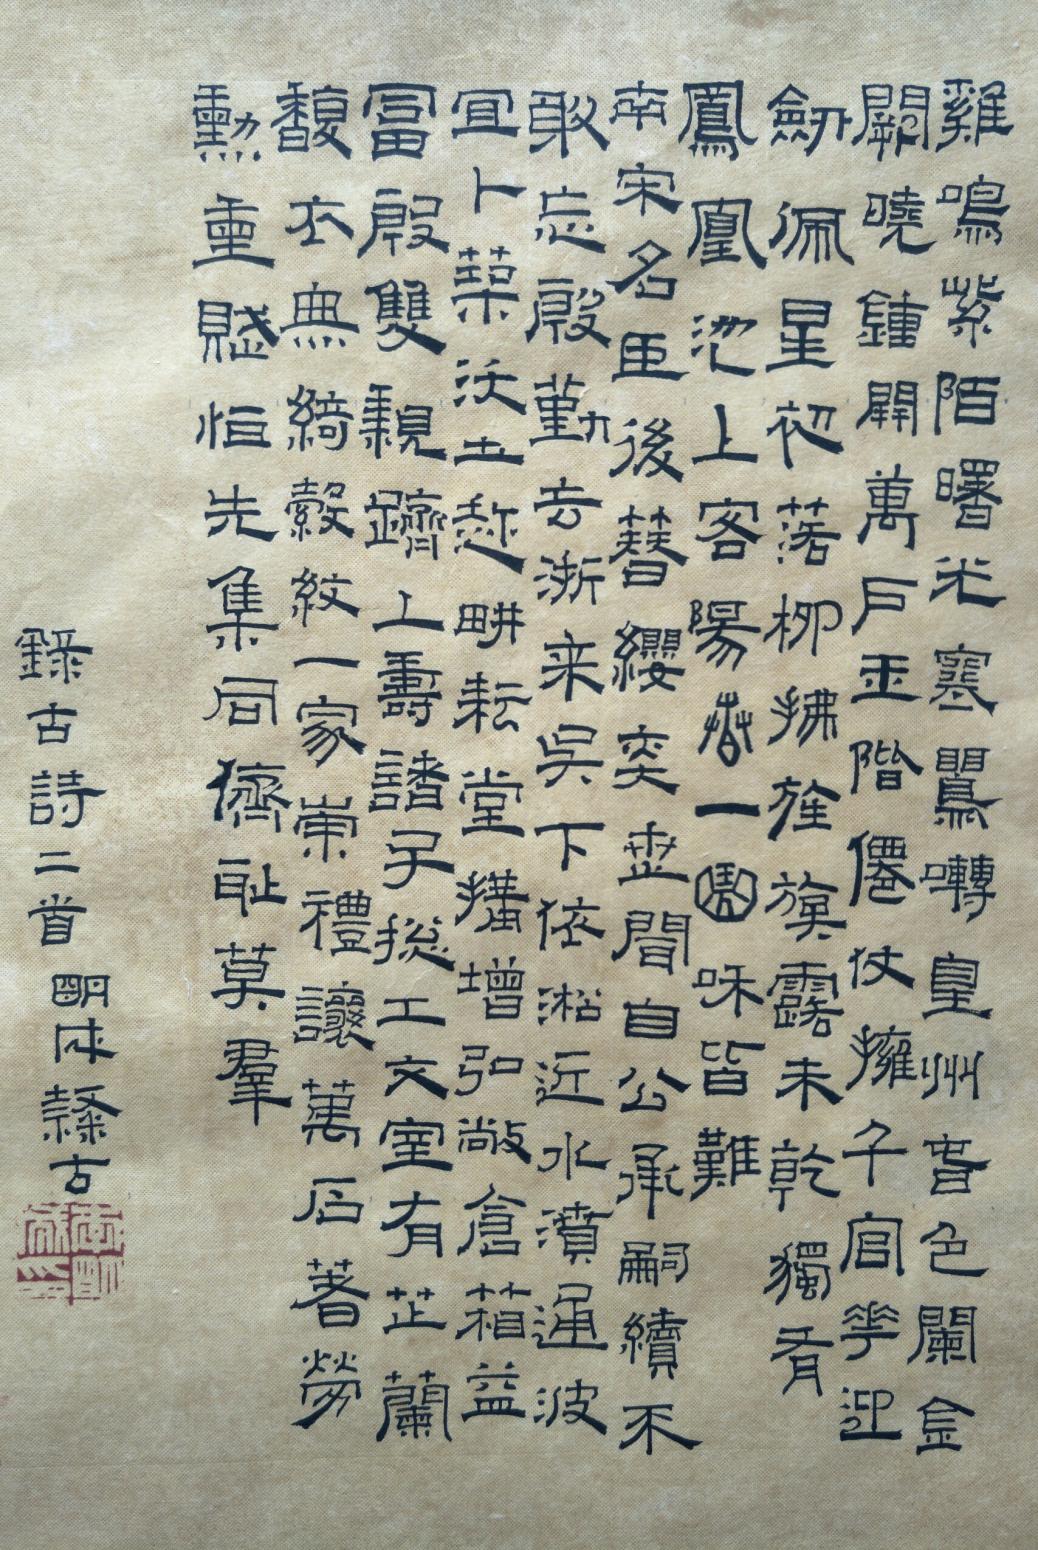 雞鳴紫陌曙光寒鶯囀皇州春色闌金
闕曉鍾開萬戶玉階僊仗擁千官花迎
劒佩星初落柳拂旌旗露未乾獨有
鳳凰池上客陽春一曲和皆難
南宋名臣後簪纓奕世聞自公承嗣續不
敢忘殷勤去浙来吳下依淞近水濆通波
宜卜築沃土趂畊耘堂搆增弘敞倉箱益
富殷雙親躋上壽諸子総工文室有芷蘭
馥衣無綺縠紋一家崇禮讓萬石著勞
勳重賦恒先集同儕恥莫羣
錄古詩二首 明 隸古